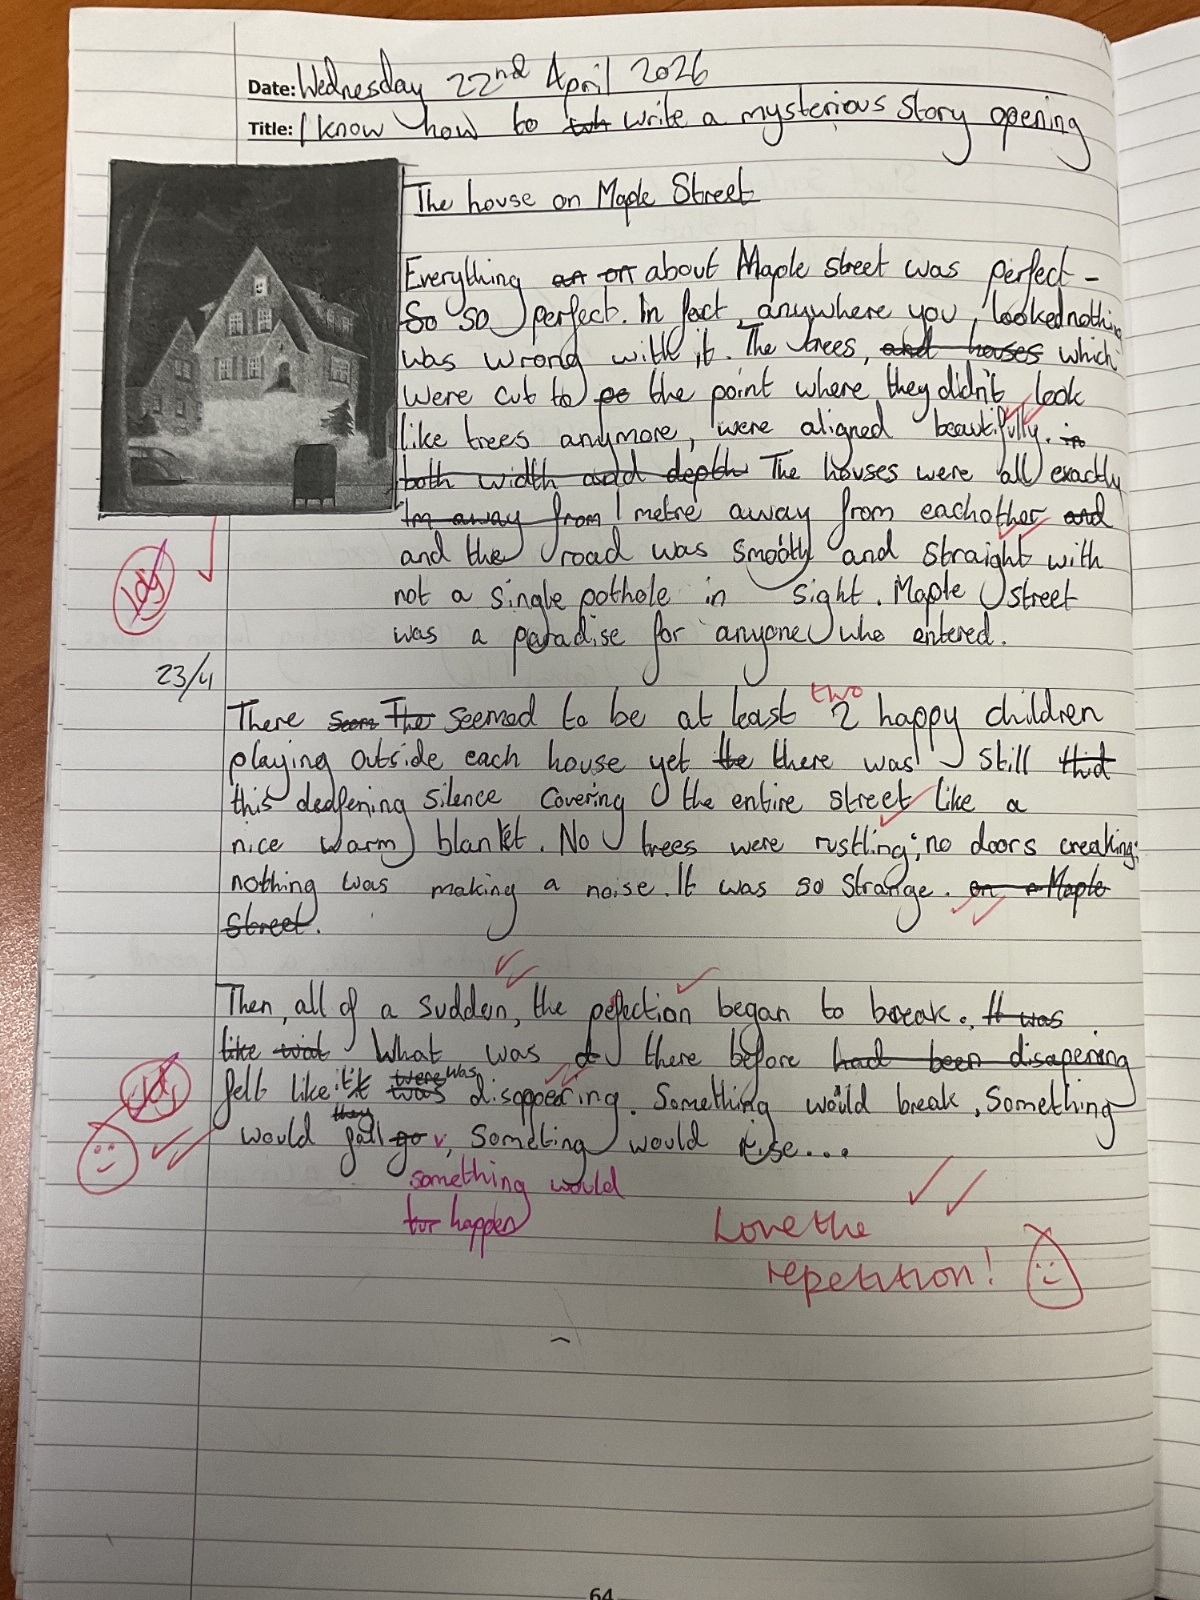 Date: Wednesday 22nd April 2026
Title: I know how to write a mysterious story opening
The house on Maple Street
Everything about Maple street was perfect -
so perfect. In fact, anywhere you looked nothing
was wrong with it. The trees, and houses which
were cut to the point where they didn't look
like trees anymore, were aligned beautifully. in
both width and depth The houses were all exactly
1m away from 1 metre away from eachother and
and the road was smooth and straight with
not a single pothole in sight. Maple street
was a paradise for anyone who entered.
23/4
two
There seemed to be at least 2 happy children
playing outside each house yet the there was still
this deafening silence covering the entire street like a
nice warm blanket. No trees were rustling; no doors creaking;
nothing was making a noise. It was so strange. on Maple
Street.
Then, all of a sudden, the pefection began to break. It was
like What was there before had been disapening
felt like it was disappearing. Something would break, Something
would fall, Someting would rise...
something would
happen
Love the
repetition!
64